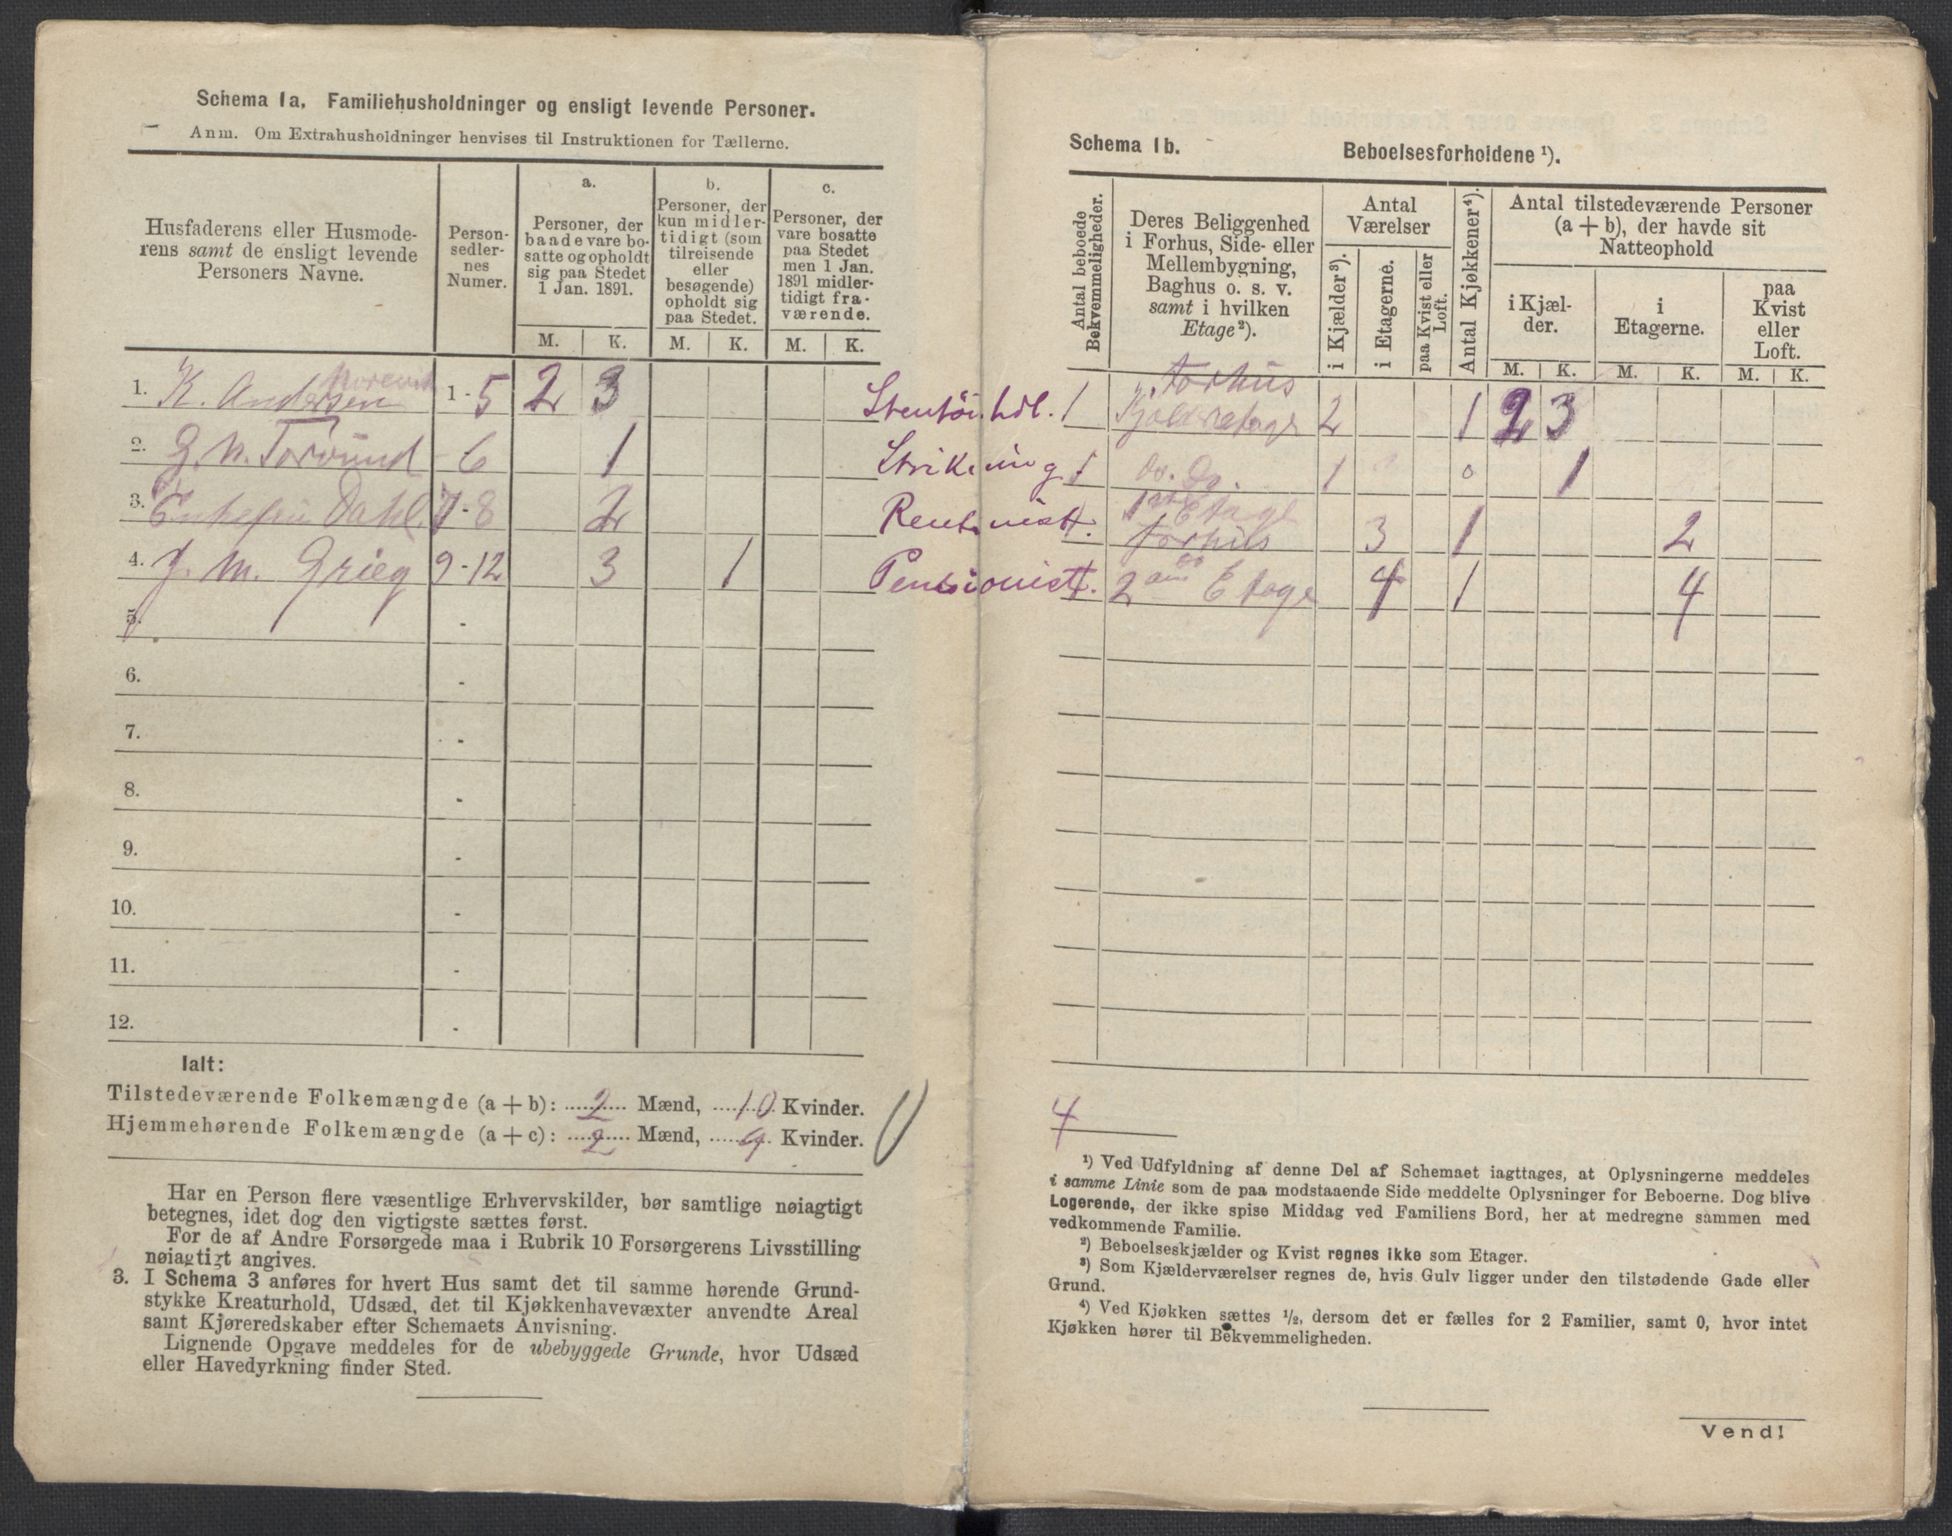 Schema 1a. Familiehusholdninger og ensligt levende Personer.
Anm. Om Extrahusholdninger henvises til Instruktionen for Tællerne.
Husfaderens eller Husmode-
rens samt de ensligt levende
Personers Navne.
Person-
sedler-
nes
Numer.
a.
Personer, der
baade vare bo-
satte og opholdt
sig paa Stedet
1 Jan. 1891.
b.
Personer, der
kun midler-
tidigt (som
tilreisende
eller
besøgende)
opholdt sig
paa Stedet.
c.
Personer, der
vare bosatte
paa Stedet
men 1 Jan.
1891 midler-
tidigt fra-
værende.
M. K. M. K. M. K.
1. K. Andersen 1 - 5 2 3
2. G. N. Torvund - 6 1
3. Dahl. 7-8 2
4. J. M. Grieg 9-12 3 1
5. -
6. -
7. -
8. -
9. -
10. -
11. -
12. -
Ialt:
Tilstedeværende Folkemængde (a + b): 2 Mænd, 10 Kvinder.
Hjemmehørende Folkemængde (a + c): 2 Mænd, 9 Kvinder.
Har en Person flere væsentlige Erhvervskilder, bør samtlige nøiagtigt
betegnes, idet dog den vigtigste sættes først.
For de af Andre Forsørgede maa i Rubrik 10 Forsørgerens Livsstilling
nøiagtigt angives.
3. I Schema 3 anføres for hvert Hus samt det til samme hørende Grund-
stykke Kreaturhold, Udsæd, det til Kjøkkenhavevæxter anvendte Areal
samt Kjøreredskaber efter Schemaets Anvisning.
Lignende Opgave meddeles for de ubebyggede Grunde, hvor Udsæd
eller Havedyrkning finder Sted.
Schema 1b. Beboelsesforholdene ¹).
Antal beboede
Bekvemmeligheder.
Deres Beliggenhed
i Forhus, Side- eller
Mellembygning,
Baghus o. s. v.
samt i hvilken
Etage²).
Antal
Værelser
i Kjælder³).
i Etagerne.
paa Kvist eller
Loft.
Antal Kjøkkener⁴).
Antal tilstedeværende Personer
(a + b), der havde sit
Natteophold
i Kjæl-
der.
i
Etagerne.
paa
Kvist
eller
Loft.
M. K. M. K. M. K.
Stentöi hdl. 1 Forhus
Kjælderetage 2 1 2 3
Strikning 1 Do. Do. 1 0 1
Rentenist. 1 1ste Etage
Forhus 3 1 2
Pensionist. 1 2 den Etage 4 1 4
4
¹) Ved Udfyldning af denne Del af Schemaet iagttages, at Oplysningerne meddeles
i samme Linie som de paa modstaaende Side meddelte Oplysninger for Beboerne. Dog blive
Logerende, der ikke spise Middag ved Familiens Bord, her at medregne sammen med
vedkommende Familie.
²) Beboelseskjælder og Kvist regnes ikke som Etager.
³) Som Kjælderværelser regnes de, hvis Gulv ligger under den tilstødende Gade eller
Grund.
⁴) Ved Kjøkken sættes ½, dersom det er fælles for 2 Familier, samt 0, hvor intet
Kjøkken hører til Bekvemmeligheden.
Vend!